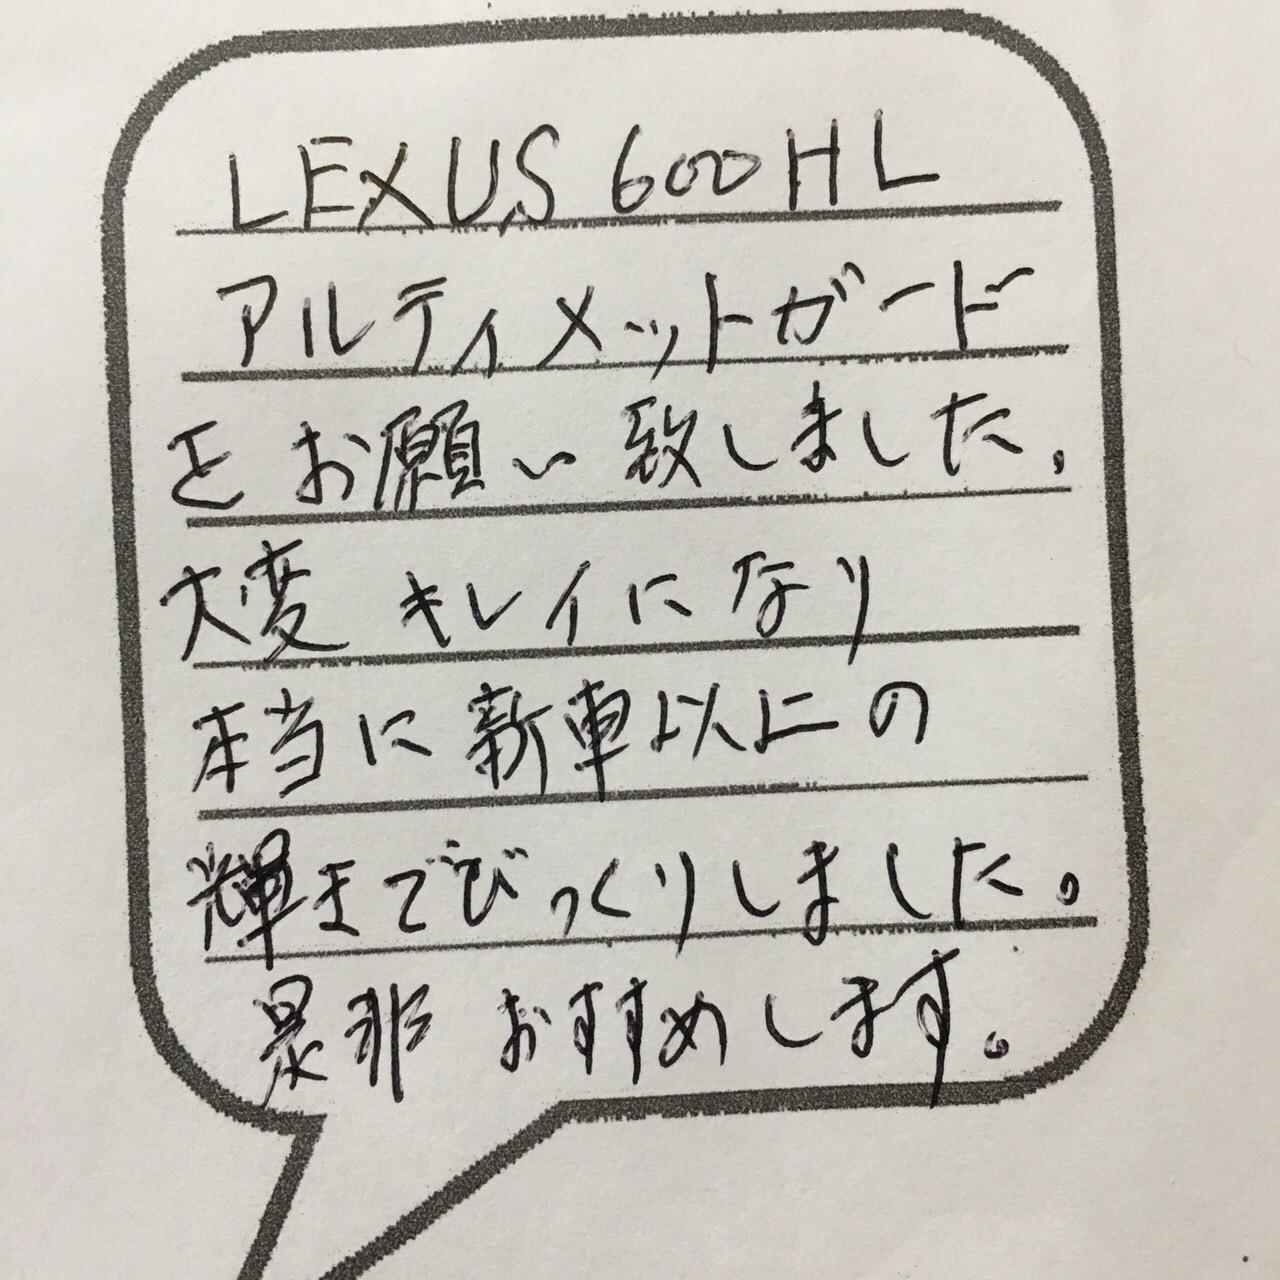 LEXUS 600HL
アルティメットガード
をお願い致しました。
大変キレイになり
本当に新車以上の
輝きでびっくりしました。
是非おすすめします。